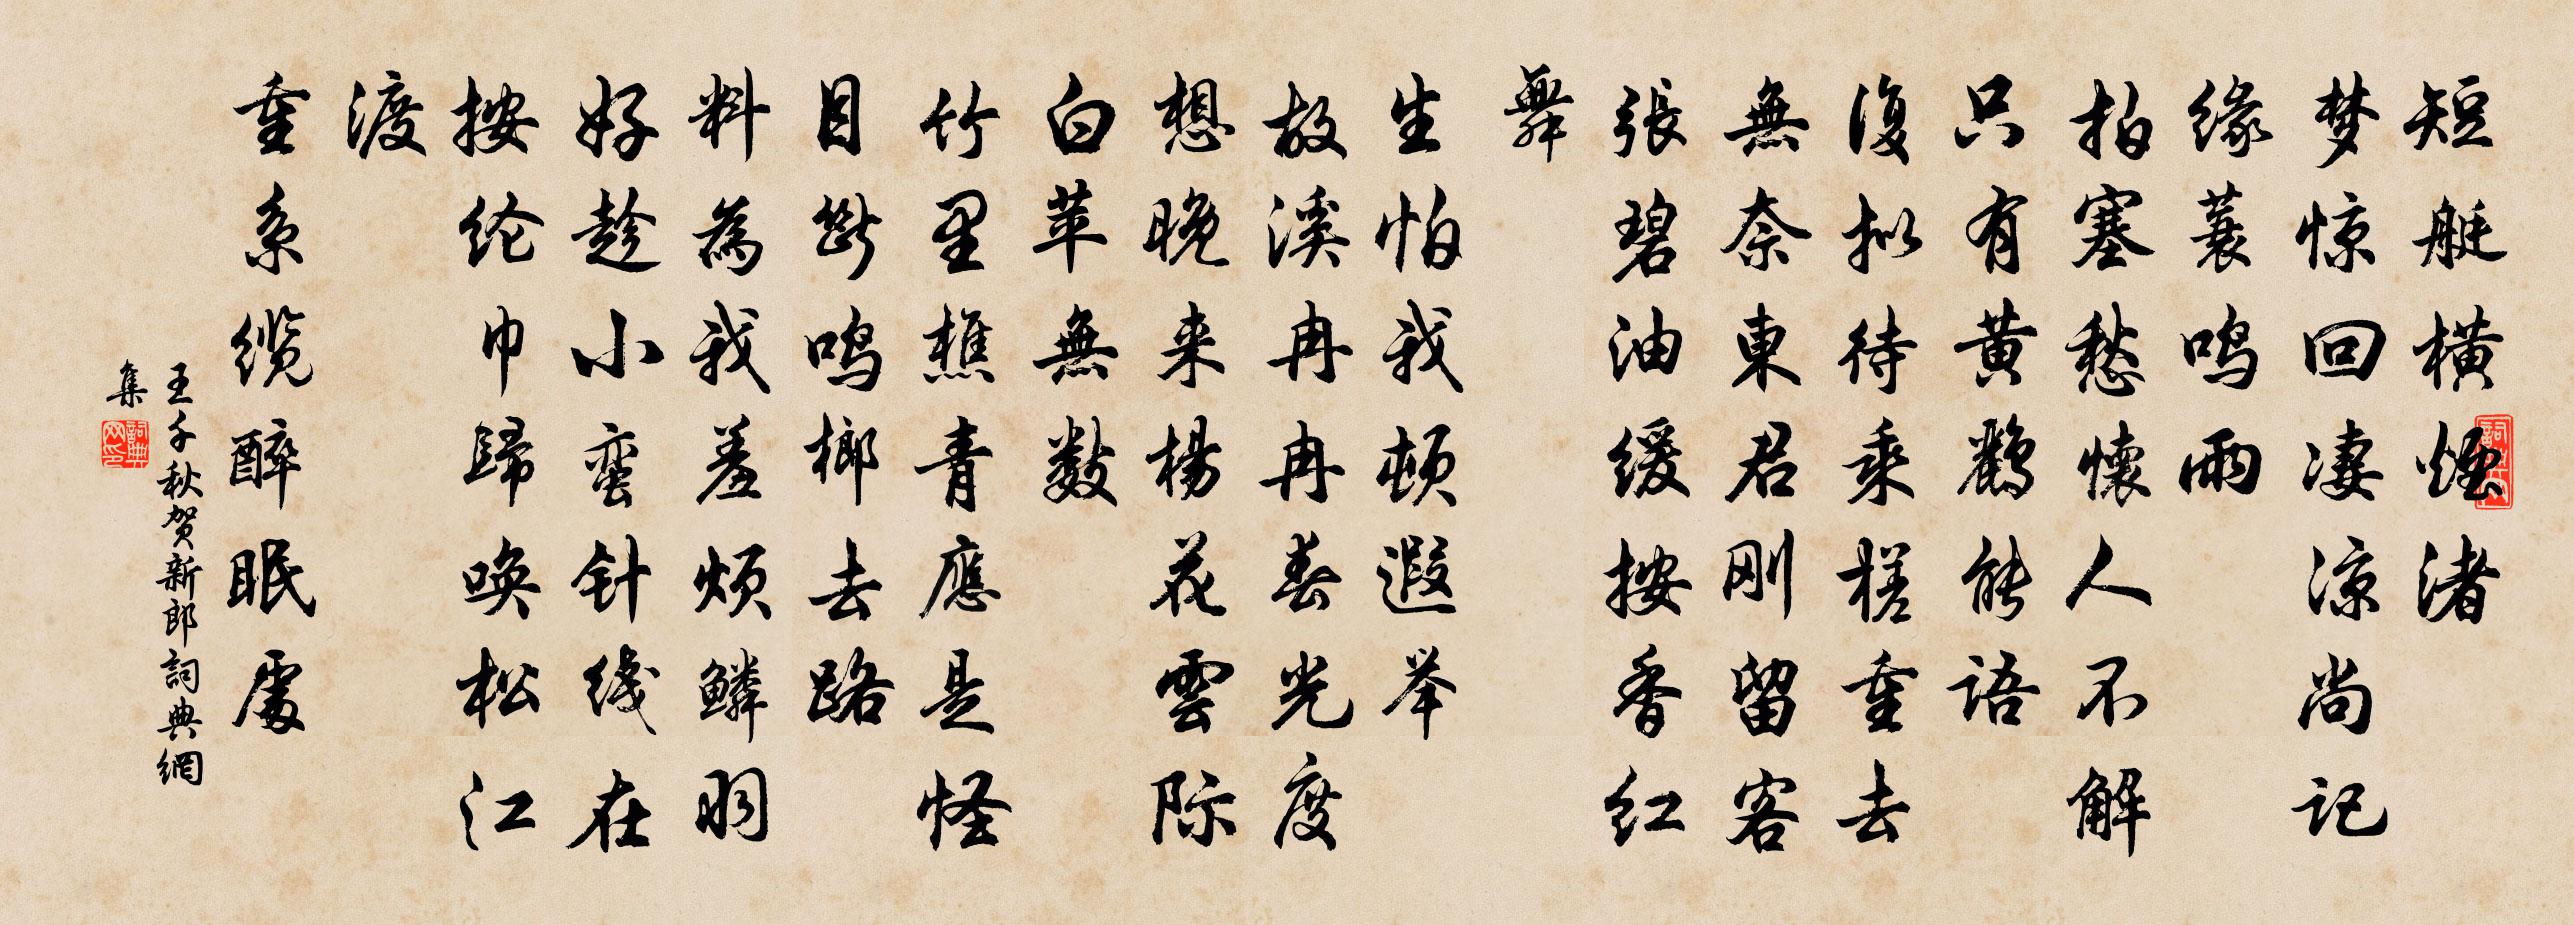 短艇横煙渚
梦惊回凄凉尚记
缘蓑鸣雨
拍塞愁懷人不解
只有黄鹤能语
復拟待乘槎重去
無奈東君刚留客
張碧油缓按香红
舞
生怕我顿遐举
故溪冉冉春光度
想晚来楊花雲际
白苹無数
竹里樵青應是怪
目断鸣榔去路
料為我羞烦鳞羽
好趁小蛮针线在
按纶巾歸唤松江
渡
重系缆醉眠處
王千秋贺新郎詞典網
集
詞典網印